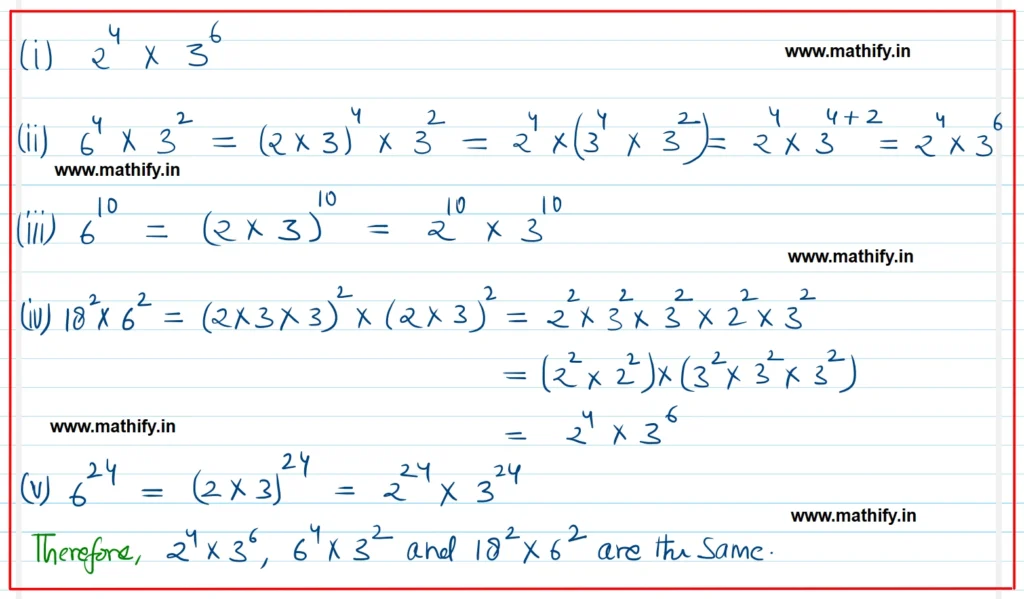 (i) 2⁴ × 3⁶
www.mathify.in
(ii) 6⁴ × 3² = (2 × 3)⁴ × 3² = 2⁴ × (3⁴ × 3²) = 2⁴ × 3⁴⁺² = 2⁴ × 3⁶
www.mathify.in
(iii) 6¹⁰ = (2 × 3)¹⁰ = 2¹⁰ × 3¹⁰
www.mathify.in
(iv) 18² × 6² = (2 × 3 × 3)² × (2 × 3)² = 2² × 3² × 3² × 2² × 3²
= (2² × 2²) × (3² × 3² × 3²)
www.mathify.in
= 2⁴ × 3⁶
(v) 6²⁴ = (2 × 3)²⁴ = 2²⁴ × 3²⁴
www.mathify.in
Therefore, 2⁴ × 3⁶, 6⁴ × 3² and 18² × 6² are the same.